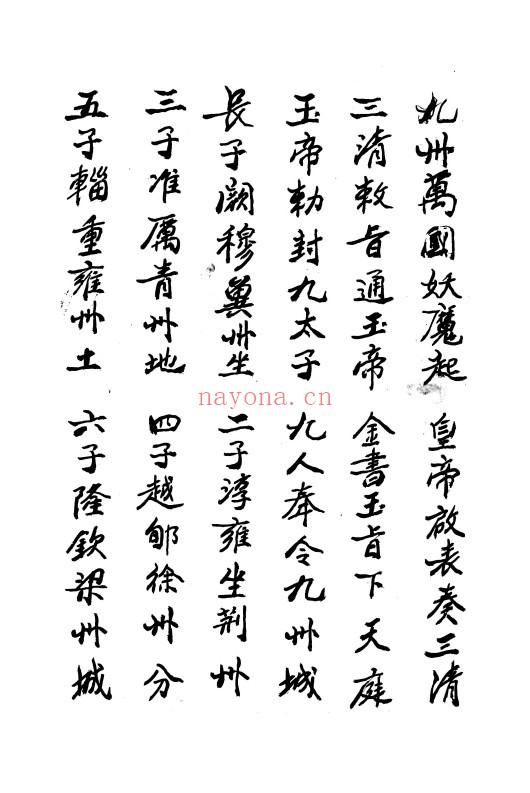 九州萬國妖魔起 皇帝啟表奏三清
三清敕旨通玉帝 金書玉旨下天庭
玉帝勅封九太子 九人奉令九州城
長子闕穆冀州坐 二子淳雍坐荆州
三子准厲青州地 四子越郇徐州分
五子輜重雍州土 六子隆欽梁州城
nayona.cn